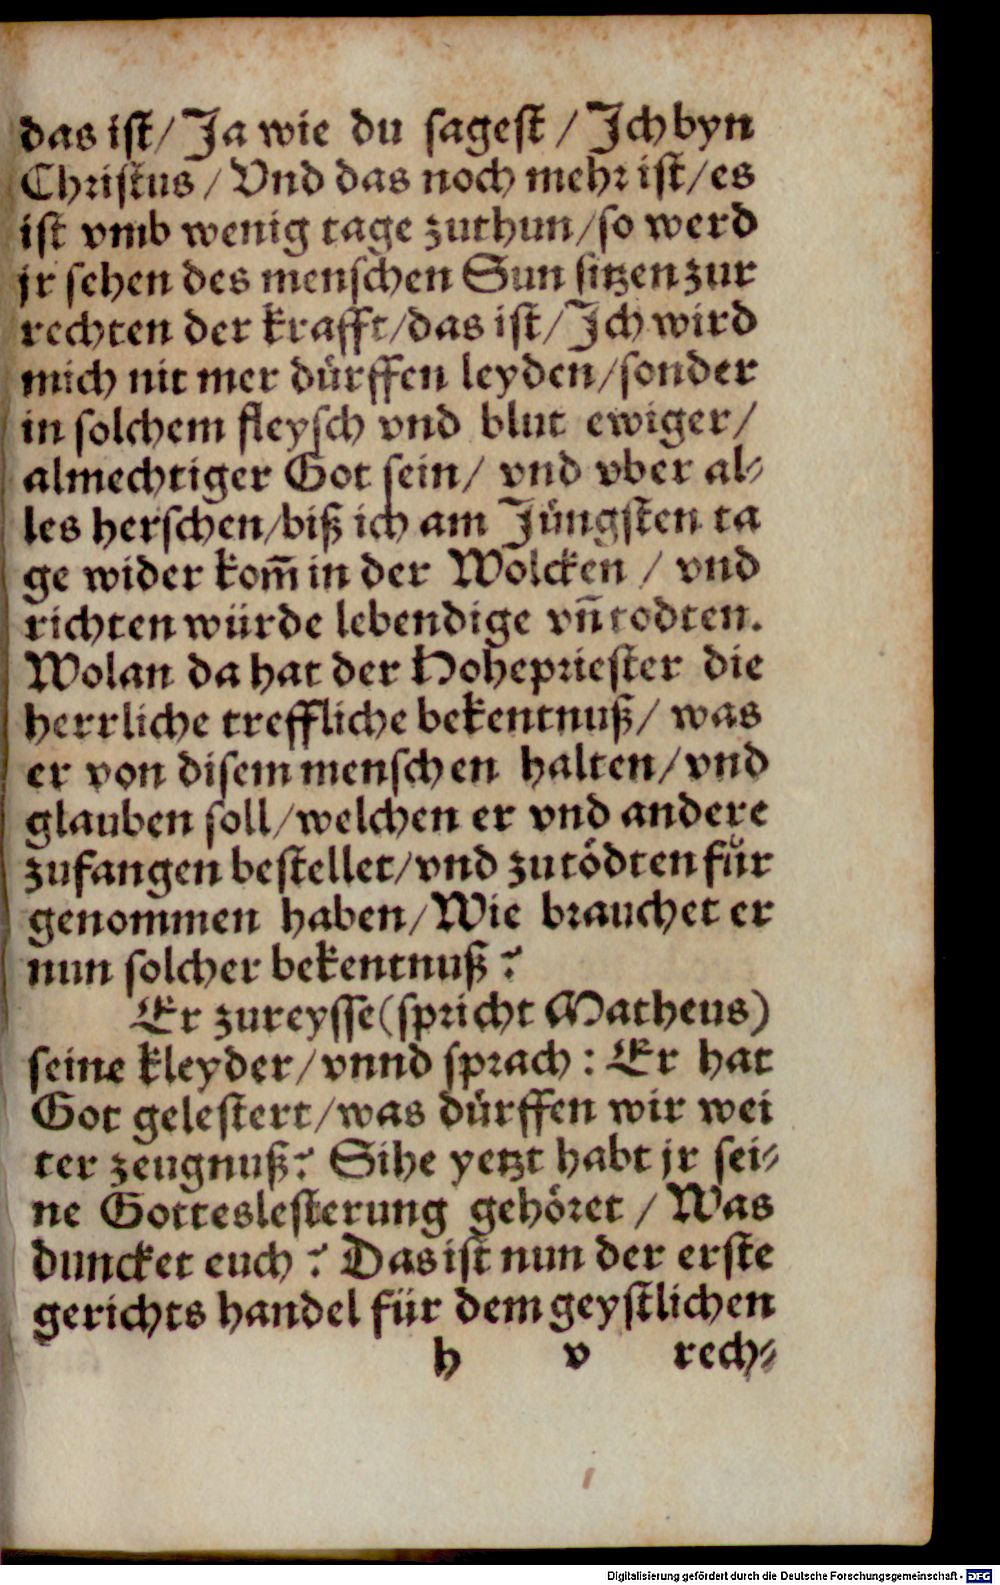 das ist/ Ja wie du sagest / Ich byn
Christus / Vnd das noch mehr ist/ es
ist vmb wenig tage zuthun/ so werd
jr sehen des menschen Sun sitzen zur
rechten der krafft/ das ist/ Ich wird
mich nit mer dürffen leyden/ sonder
in solchem fleysch vnd blut ewiger/
almechtiger Got sein/ vnd vber al⸗
les herschen/ biß ich am Jüngsten ta
ge wider kom̄ in der Wolcken / vnd
richten würde lebendige vn̄ todten.
Wolan da hat der Hohepriester die
herrliche treffliche bekentnuß/ was
er von disem menschen halten/ vnd
glauben soll/ welchen er vnd andere
zufangen bestellet/ vnd zutödten für
genommen haben/ Wie brauchet er
nun solcher bekentnuß?
Er zureysse (spricht Matheus)
seine kleyder/ vnnd sprach: Er hat
Got gelestert/ was dürffen wir wei
ter zeugnuß? Sihe yetzt habt jr sei⸗
ne Gotteslesterung gehöret / Was
duncket euch? Das ist nun der erste
gerichts handel für dem geystlichen
h v rech⸗
Digitalisierung gefördert durch die Deutsche Forschungsgemeinschaft - DFG